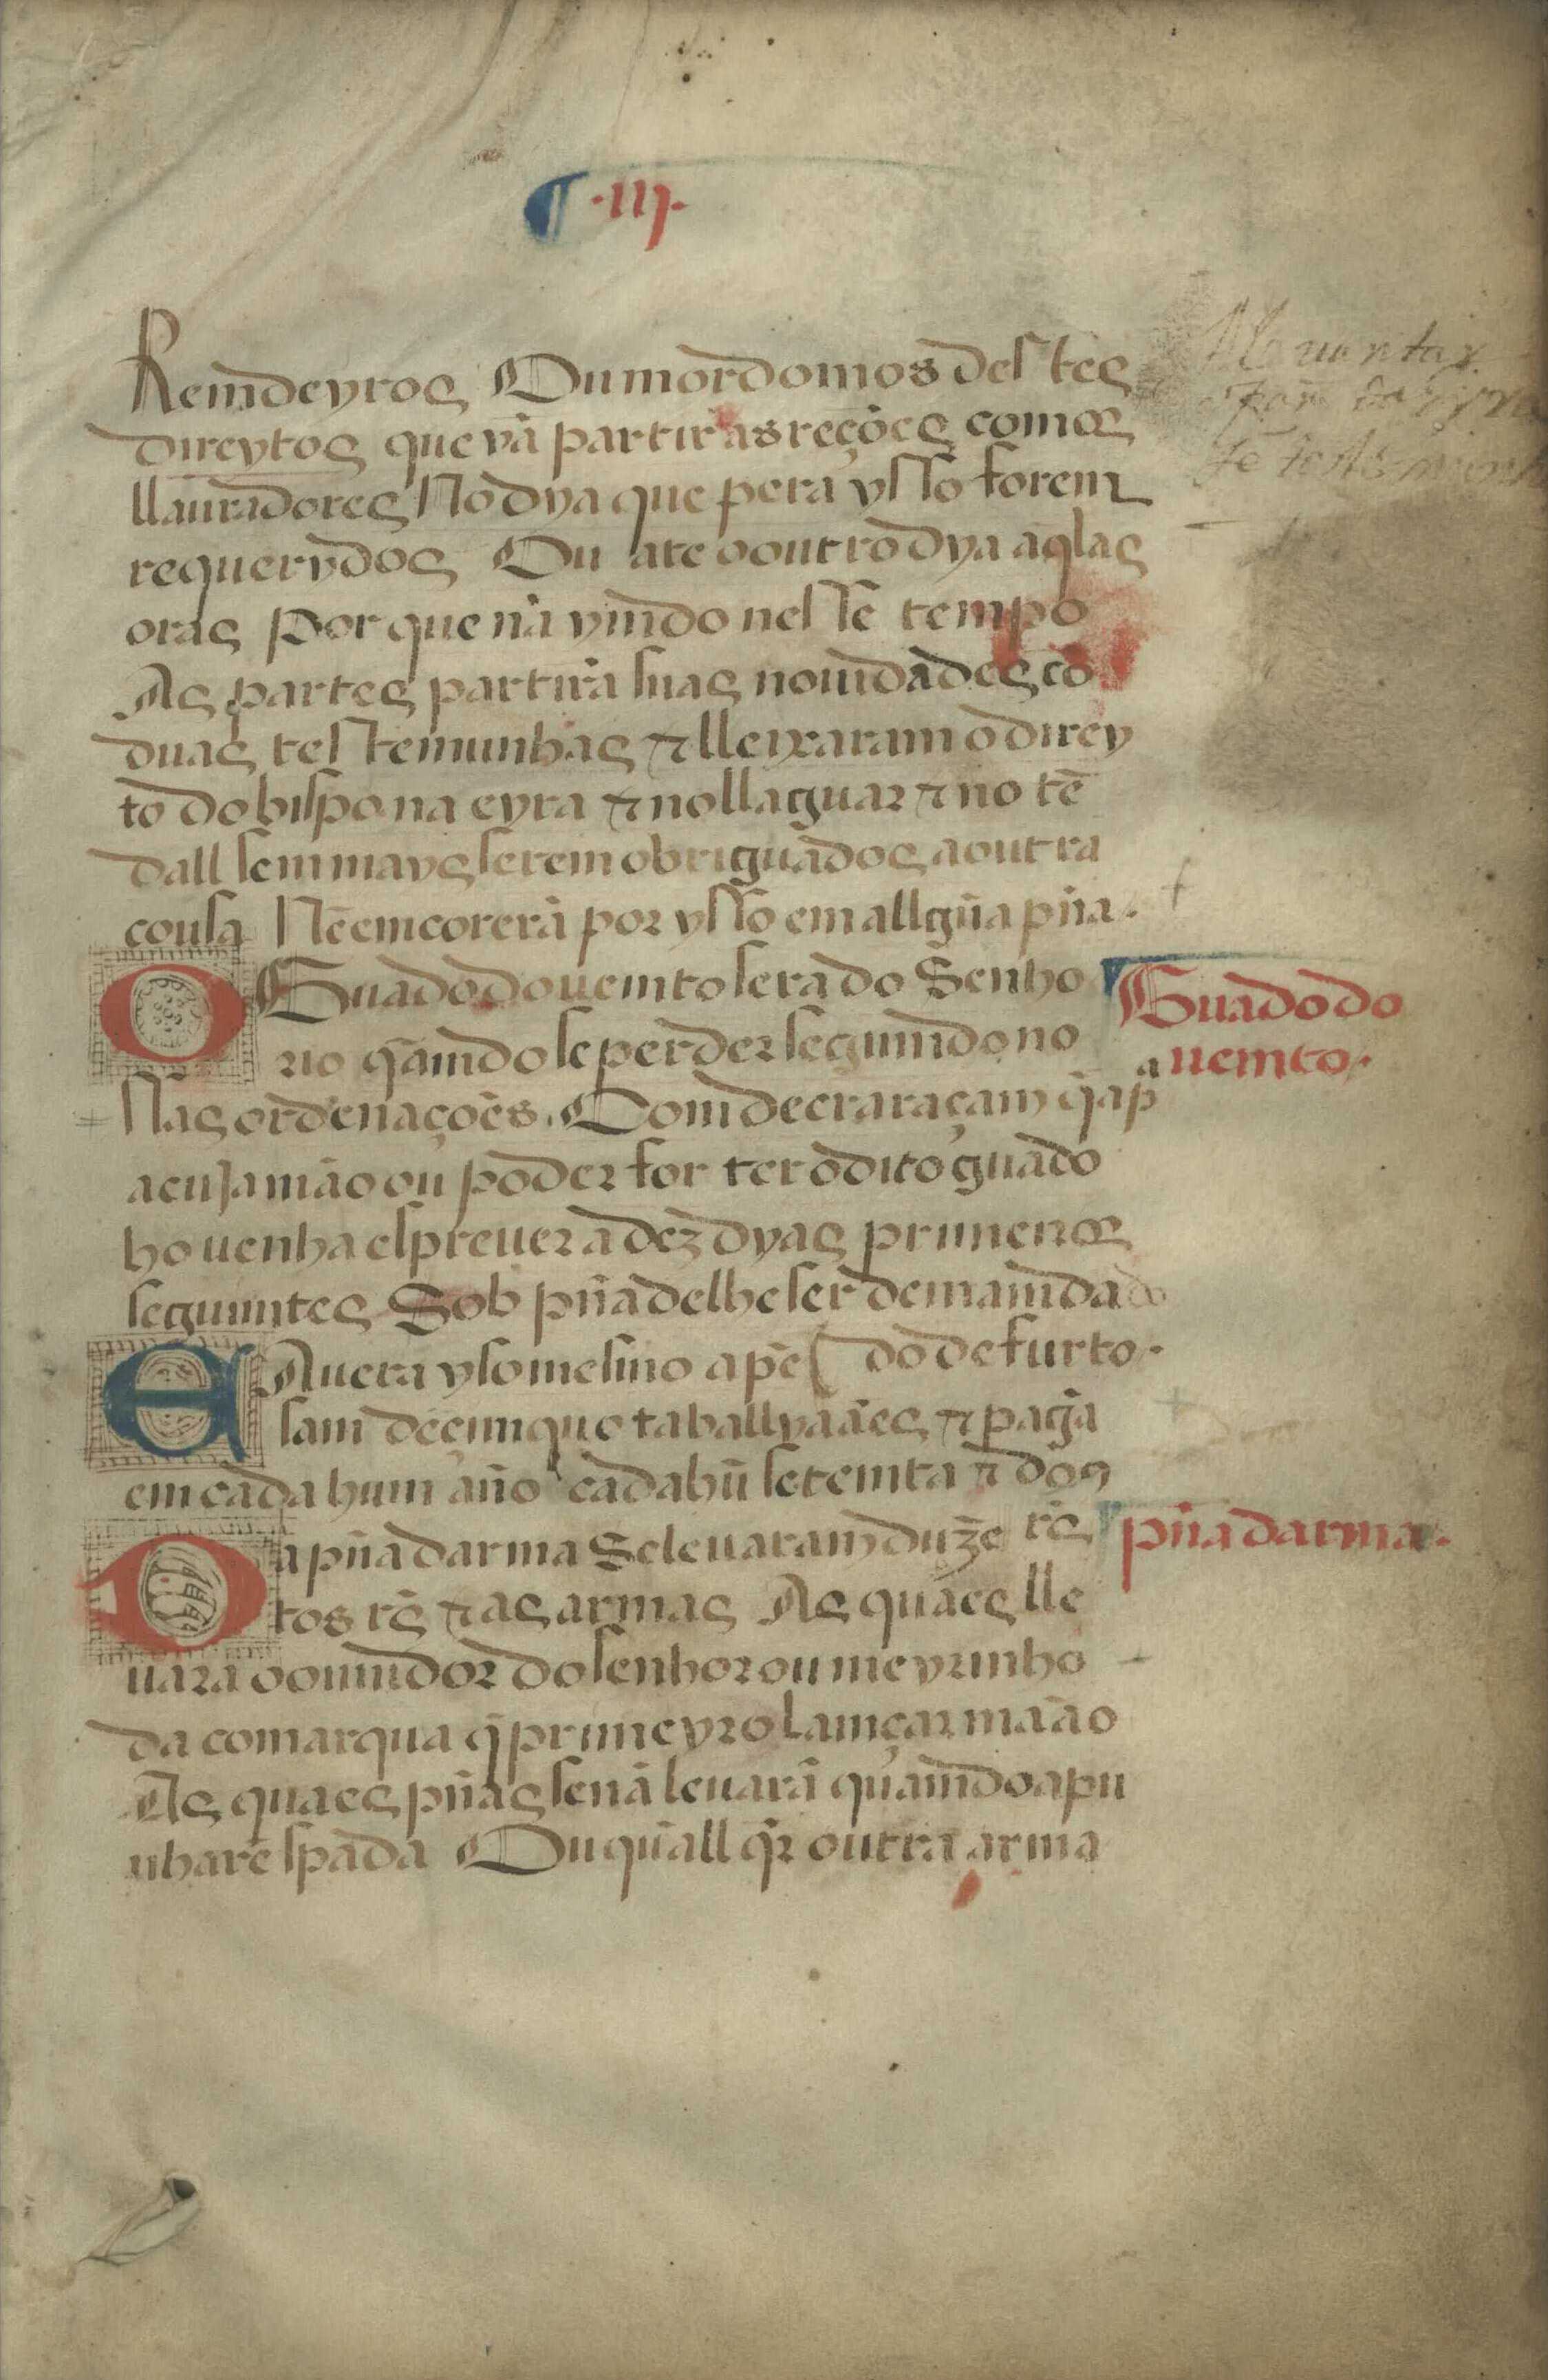 ¶ .iij.
Remdeyros Ou mordomos destes
direytos que vã partir as reções com os
llauradores No dya que pera ysso forem
requerydos Ou ate o outro dya aq̃las
oras por que nã vimdo nesse tempo
As partes partirã suas nouidades cõ
duas testemunhas ⁊ lleixaram o direy
to do bispo na eyra ⁊ no llaguar ⁊ no tẽ
dall sem mays serem obriguados a outra
cousa Nẽ emcorerã por ysso em allgũa pñа.
O Guado do uemto sera do Senho
rio q̃amdo se perder segumdo no
ssas ordenações. Com decraraçam q̃ a p̃
a cuja mão ou poder for ter o dito guado
ho uenha espreuer a dez dyas primeiros
seguimtes Sob pña de lhe ser demamdado
E Auera yso mesmo a pẽ do de furto.
sam de çimquo taballyaães ⁊ pagã
em cada hum año cada hũ setemta ⁊ dous
Da pña darma Se leuaram duzẽ rẽs
tos rẽs ⁊ as armas As quaes lle
uara o ouuidor do senhor ou meyrinho
da comarqua q̃ primeyro lamçar maão
As quaes pñas se nã leuarã quamdo apu
nharẽ spada Ou quall q̃r outra arma
Guado do
uemto.
pña darma.